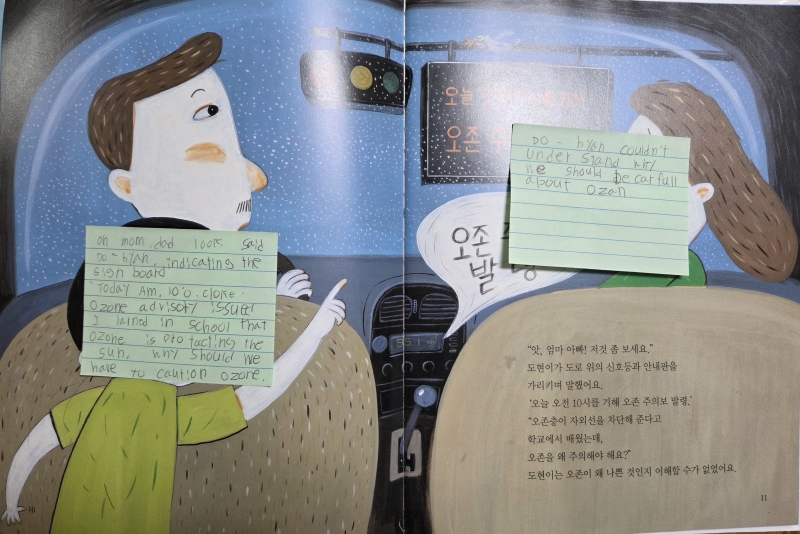 oh mom, dad look. said
Do-hyan, indicating the
sign board
"Today Am, 10'o, close.
Ozone advisory issued
I larned in school that
Ozone is protacting the
sun, why should we
have to caution ozone.
오늘
오존 주
Do-hyan couldn't
under stand why
we should be carfull
about ozon.
오존
발
55.1
"앗, 엄마 아빠! 저것 좀 보세요."
도현이가 도로 위의 신호등과 안내판을
가리키며 말했어요.
'오늘 오전 10시를 기해 오존 주의보 발령.'
"오존층이 자외선을 차단해 준다고
학교에서 배웠는데,
오존을 왜 주의해야 해요?"
도현이는 오존이 왜 나쁜 것인지 이해할 수가 없었어요.
10
11